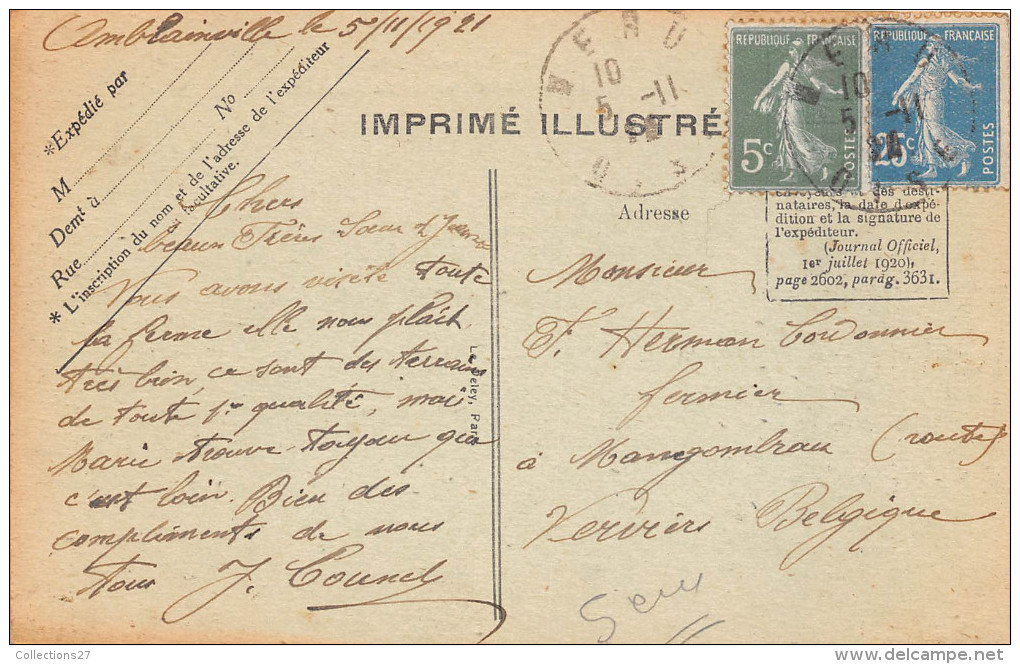 Amblainville le 5/11/1921
*Expédié par
M
Demt à
Rue No
* L'inscription du nom et de l'adresse de l'expéditeur
est facultative.
IMPRIMÉ ILLUSTRÉ
MERU
10
5 -11
21
OISE
REPUBLIQUE FRANÇAISE
5c
POSTES
REPUBLIQUE FRANÇAISE
25c
POSTES
MERU
10
5 -11
OISE
et des desti-
nataires, la date d'expé-
dition et la signature de
l'expéditeur.
(Journal Officiel,
1er juillet 1920),
page 2602, parag. 3631.
Adresse
Chers
beaux Frères Sœur &
Nous avons visité toute
la ferme elle nous plaît
très bien, ce sont des terrains
de toute 1re qualité, mais
Marie trouve que
c'est loin. Bien des
compliments de nous
tous J.
Monsieur
F. Herman Cordonnier
fermier
à Mangombroux (route)
Verviers Belgique
Le Deley, Paris
Collections27